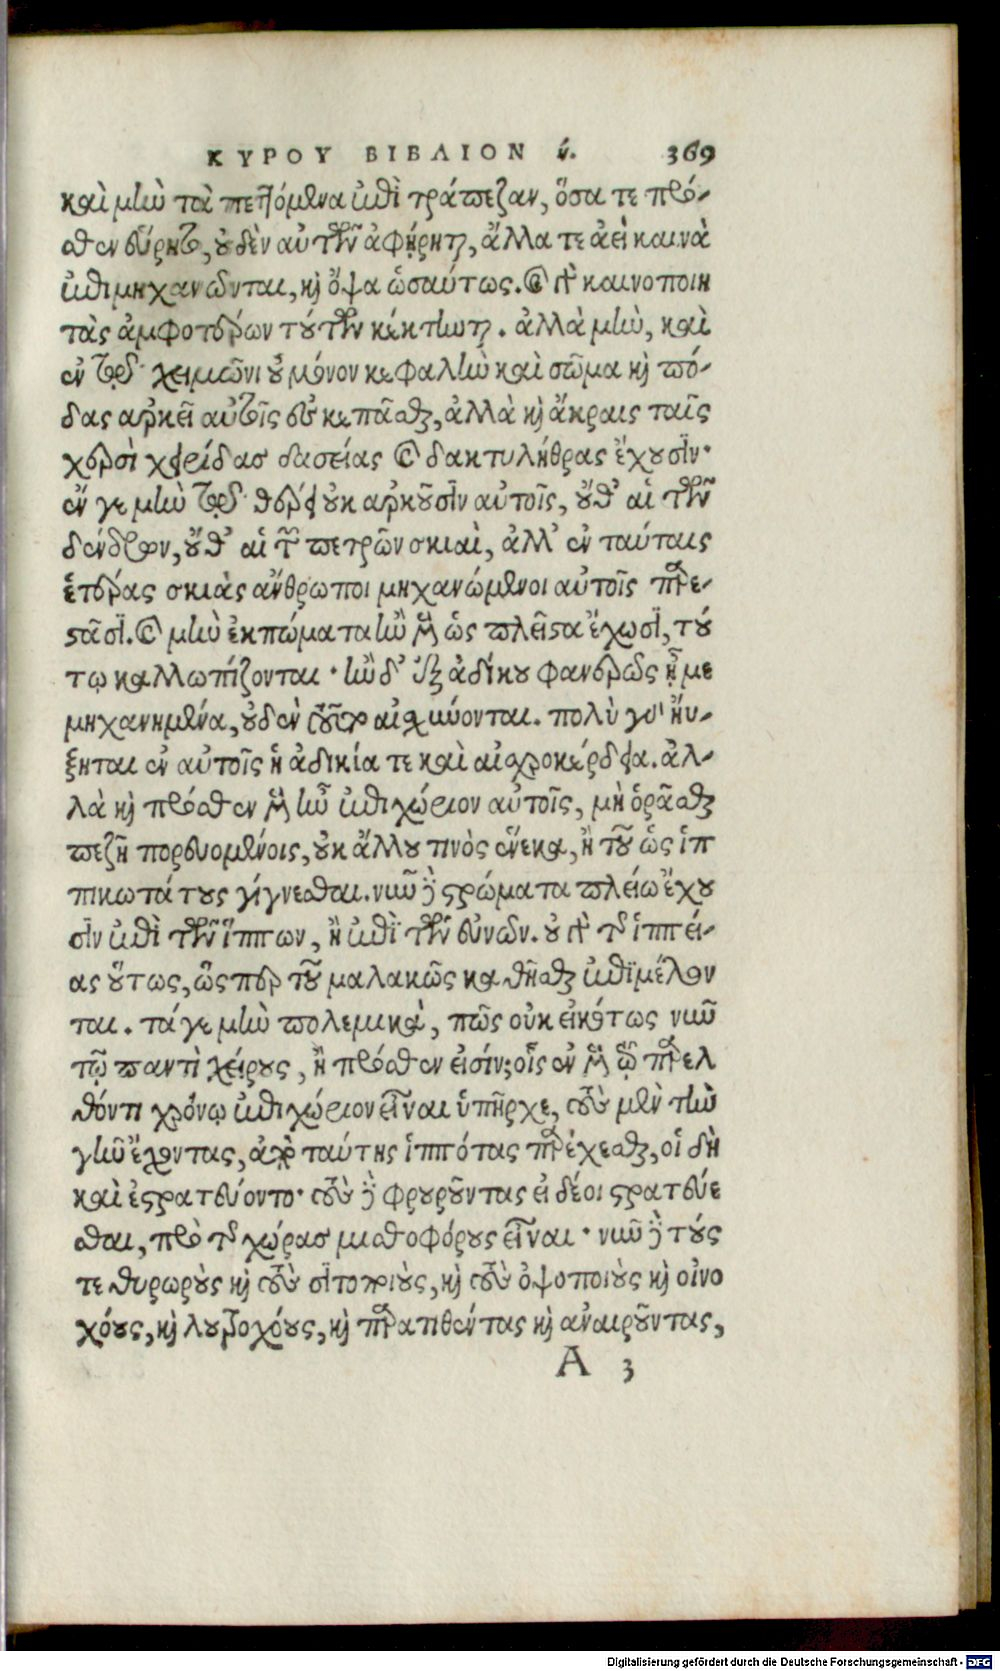 ΚΥΡΟΥ ΒΙΒΛΙΟΝ ή. 369
καὶ μὴν τὰ πεττόμενα ἐπὶ τράπεζαν, ὅσα τε πρό-
σθεν εὕρητο, οὐδὲν αὐτῶν ἀφῄρηται, ἄλλα τε ἀεὶ καινὰ
ἐπιμηχανῶνται, καὶ ὄψα ὡσαύτως. καὶ γὰρ καινοποιη
τὰς ἀμφοτέρων τούτων κέκτηνται. ἀλλὰ μὴν, καὶ
ἐν τῷ χειμῶνι οὐ μόνον κεφαλὴν καὶ σῶμα καὶ πό-
δας ἀρκεῖ αὐτοῖς ἐσκεπᾶσθαι, ἀλλὰ καὶ ἄκραις ταῖς
χερσὶ χειρίδας δασείας καὶ δακτυλήθρας ἔχουσιν·
ἔν γε μὴν τῷ θέρει οὐκ ἀρκοῦσιν αὐτοῖς, οὔθ' αἱ τῶν
δένδρων, οὔθ' αἱ τῶν πετρῶν σκιαὶ, ἀλλ' ἐν ταύταις
ἑτέρας σκιὰς ἄνθρωποι μηχανώμενοι αὐτοῖς παρε-
στᾶσι. καὶ μὴν ἐκπώματα ἢν μὲν ὡς πλεῖστα ἔχωσι, τού
τῳ καλλωπίζονται· ἢν δ' ἐξ ἀδίκου φανερῶς ᾖ με
μηχανημένα, οὐδὲν τοῦτο αἰσχύνονται. πολὺ γὰρ ηὔ-
ξηται ἐν αὐτοῖς ἡ ἀδικία τε καὶ αἰσχροκέρδεια. ἀλ-
λὰ καὶ πρόσθεν μὲν ἦν ἐπιχώριον αὐτοῖς, μὴ ὁρᾶσθαι
πεζῇ πορευομένοις, οὐκ ἄλλου τινὸς ἕνεκα, ἢ τοῦ ὡς ἱπ
πικωτάτους γίγνεσθαι. νῦν δὲ στρώματα πλείω ἔχου
σιν ἐπὶ τῶν ἵππων, ἢ ἐπὶ τῶν εὐνῶν. οὐ γὰρ τῆς ἱππεί-
ας οὕτως, ὥσπερ τοῦ μαλακῶς καθῆσθαι ἐπιμέλον
ται. τά γε μὴν πολεμικὰ, πῶς οὐκ εἰκότως νῦν
τῷ παντὶ χείρους, ἢ πρόσθεν εἰσίν; οἷς ἐν μὲν τῷ παρελ
θόντι χρόνῳ ἐπιχώριον εἶναι ὑπῆρχε, τοὺς μὲν τὴν
γῆν ἔχοντας, ἀπὸ ταύτης ἱππότας παρέχεσθαι, οἳ δὴ
καὶ ἐστρατεύοντο· τοὺς δὲ φρουροῦντας εἰ δέοι στρατεύε
σθαι, πρὸ τῆς χώρας μισθοφόρους εἶναι· νῦν δὲ τούς
τε θυρωροὺς καὶ τοὺς σιτοποιοὺς, καὶ τοὺς ὀψοποιοὺς καὶ οἰνο
χόους, καὶ λουτροχόους, καὶ παρατιθέντας καὶ ἀναιροῦντας,
A 3
Digitalisierung gefördert durch die Deutsche Forschungsgemeinschaft - DFG